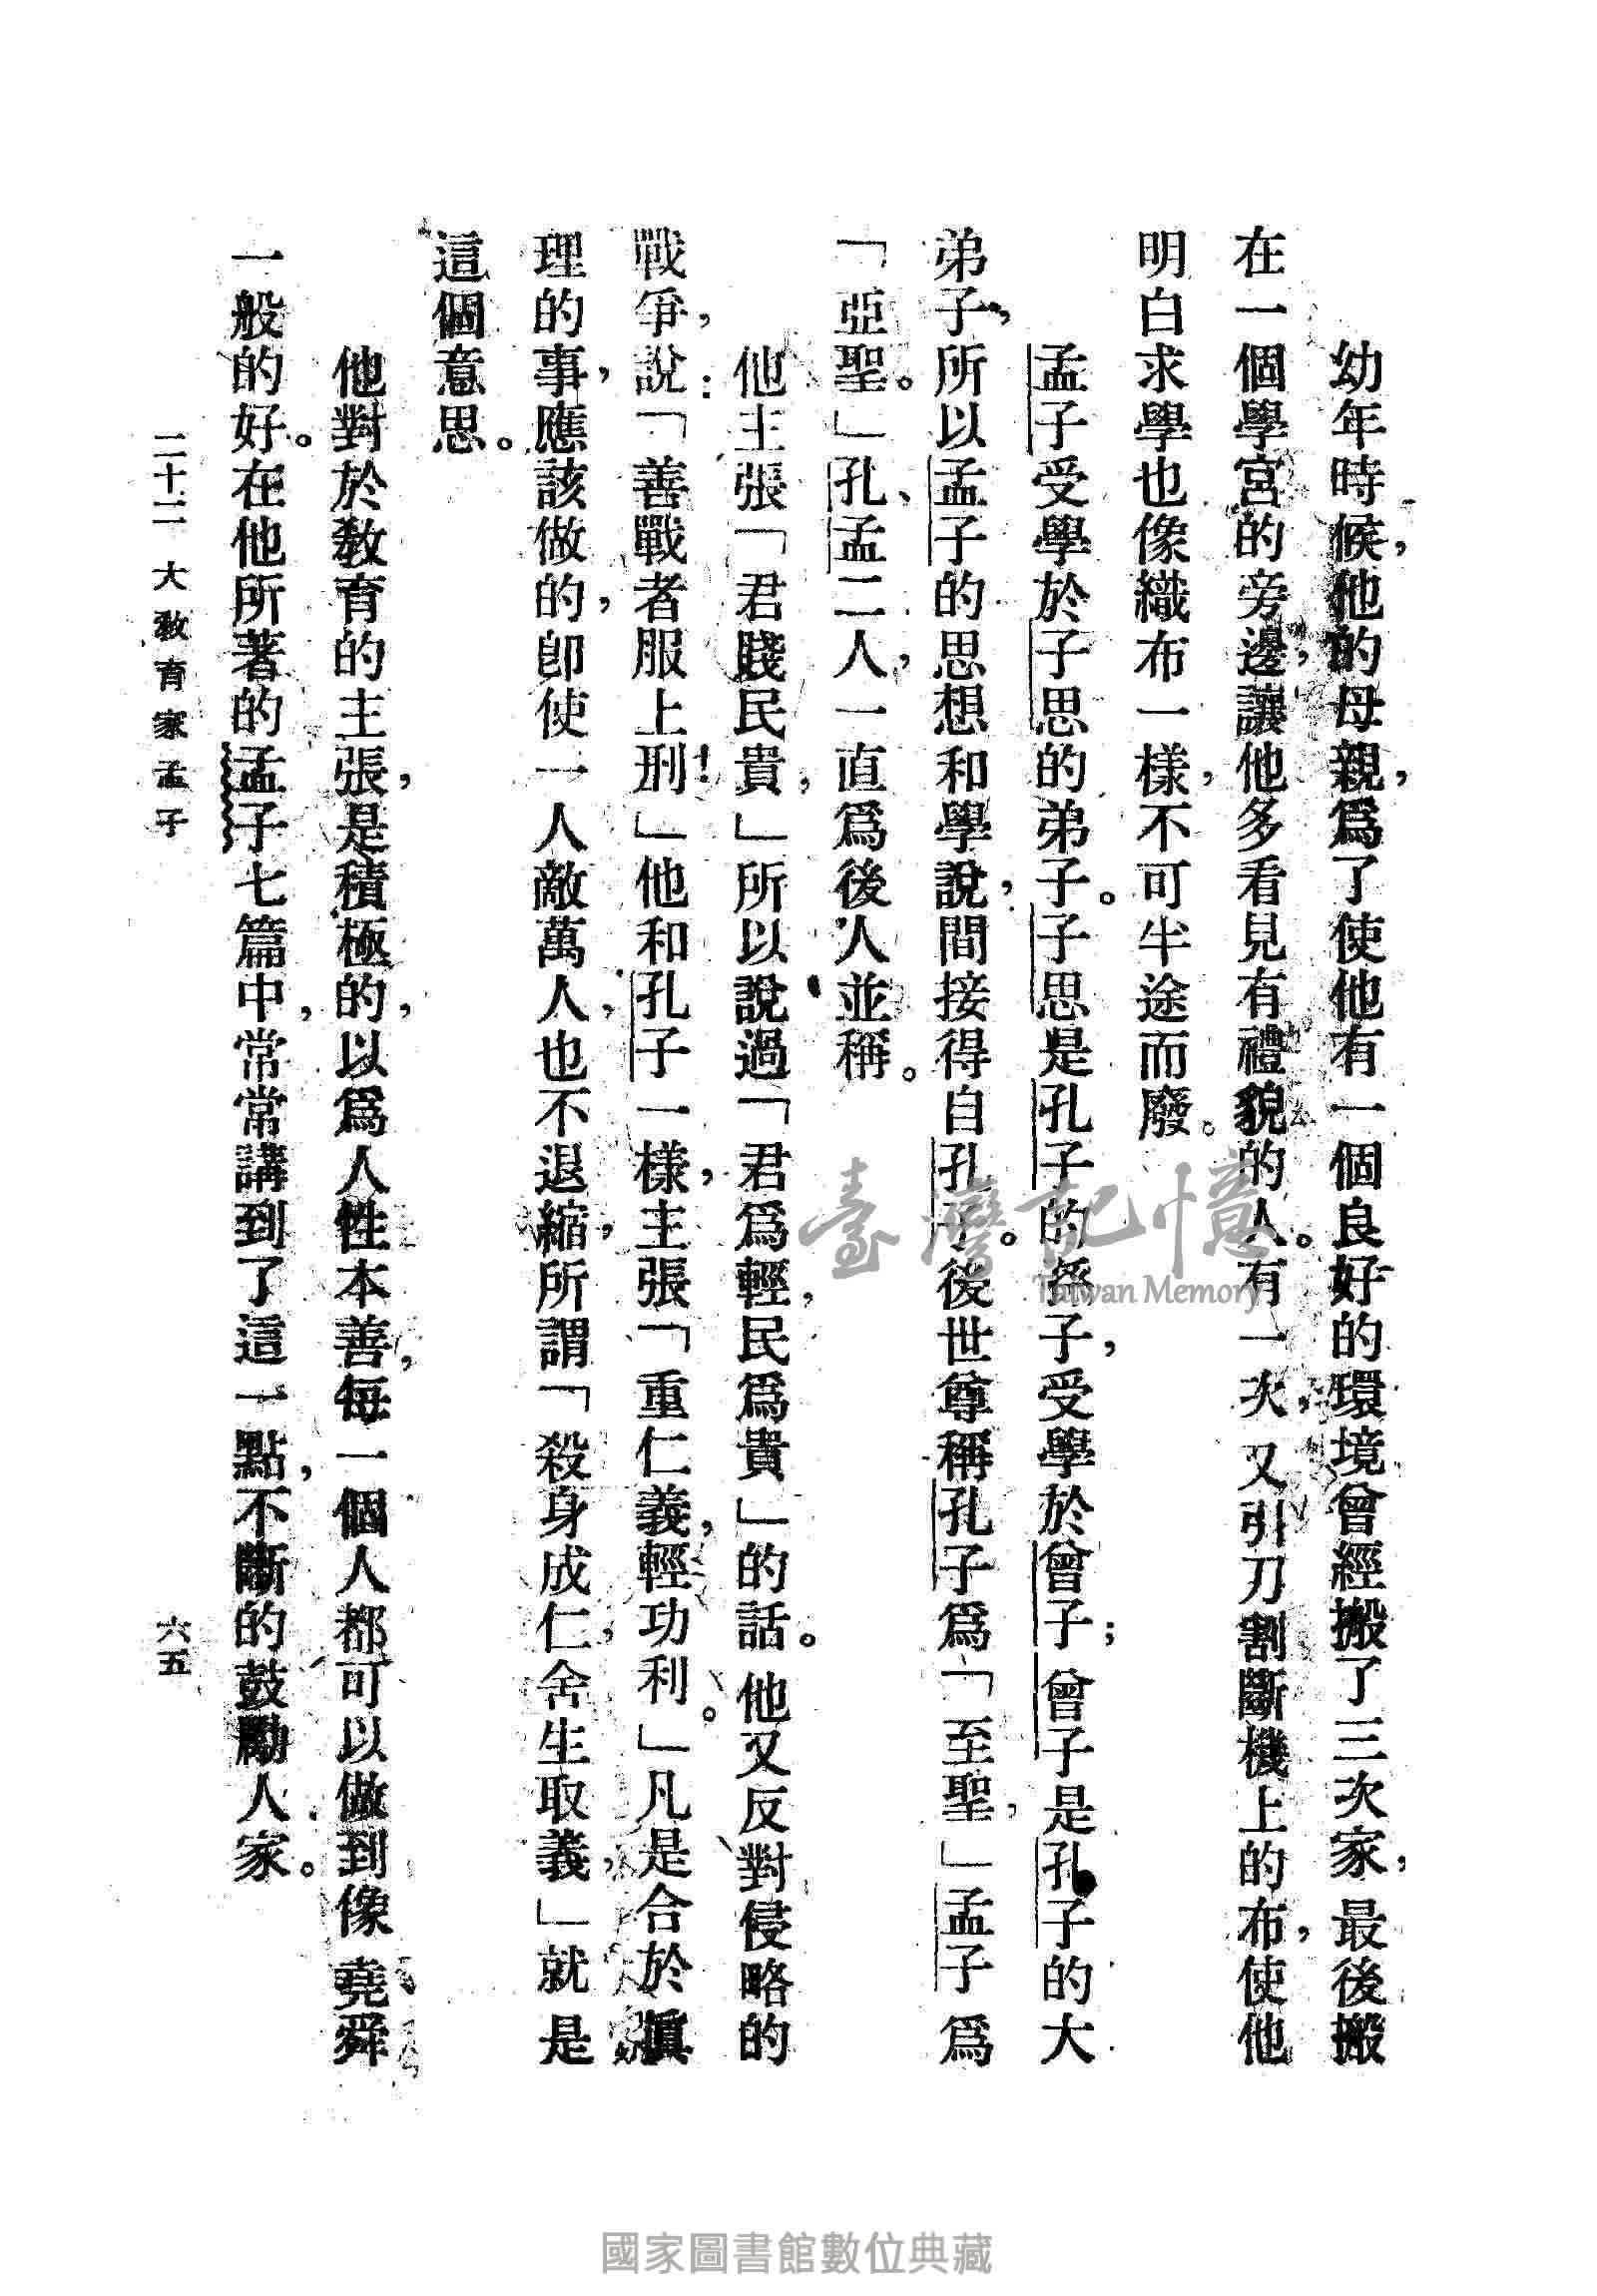 幼年時候，他的母親，爲了使他有一個良好的環境曾經搬了三次家，最後搬
在一個學宮的旁邊，讓他多看見有禮貌的人。有一次，又引刀割斷機上的布，使他
明白求學也像織布一樣，不可半途而廢。
孟子受學於子思的弟子。子思是孔子的孫子，受學於曾子；曾子是孔子的大
弟子，所以孟子的思想和學說，間接得自孔子。後世尊稱孔子爲「至聖，」孟子爲
「亞聖。」孔、孟二人，一直爲後人並稱。
他主張「君賤民貴，」所以說過「君爲輕，民爲貴」的話。他又反對侵略的
戰爭，說：「善戰者服上刑！」他和孔子一樣，主張「重仁義，輕功利。」凡是合於眞
理的事，應該做的，卽使一人敵萬人，也不退縮，所謂「殺身成仁，舍生取義，」就是
這個意思。
他對於教育的主張，是積極的，以爲人性本善，每一個人都可以做到像堯、舜
一般的好。在他所著的孟子七篇中，常常講到了這一點，不斷的鼓勵人家。
二十二 大教育家孟子
六五
臺灣記憶
Taiwan Memory
國家圖書館數位典藏